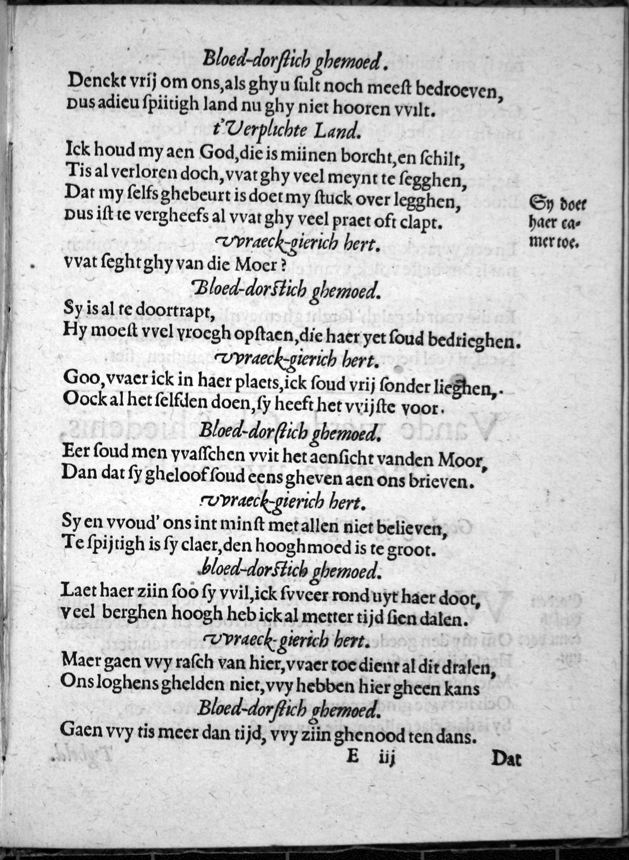 Bloed-dorſtich ghemoed.
Denckt vrij om ons, als ghy u ſult noch meeſt bedroeven,
Dus adieu ſpiitigh land nu ghy niet hooren vvilt.
t'Verplichte Land.
Ick houd my aen God, die is miinen borcht, en ſchilt,
Tis al verloren doch, vvat ghy veel meynt te ſegghen,
Dat my ſelfs ghebeurt is doet my ſtuck over legghen,
Dus iſt te vergheefs al vvat ghy veel praet oft clapt.
Sy doet
haer ca-
mer toe.
vvraeck-gierich hert.
vvat ſeght ghy van die Moer?
Bloed-dorſtich ghemoed.
Sy is al te doortrapt,
Hy moeſt vvel vroegh opſtaen, die haer yet ſoud bedrieghen.
vvraeck-gierich hert.
Goo, vvaer ick in haer plaets, ick ſoud vrij ſonder lieghen,
Oock al het ſelfden doen, ſy heeft het vvijſte voor.
Bloed-dorſtich ghemoed.
Eer ſoud men vvaſſchen vvit het aenſicht vanden Moor,
Dan dat ſy gheloof ſoud eens gheven aen ons brieven.
vvraeck-gierich hert.
Sy en vvoud' ons int minſt met allen niet believen,
Te ſpijtigh is ſy claer, den hooghmoed is te groot.
bloed-dorſtich ghemoed.
Laet haer ziin ſoo ſy vvil, ick ſvveer rond uyt haer doot,
veel berghen hoogh heb ick al metter tijd ſien dalen.
vvraeck-gierich hert.
Maer gaen vvy raſch van hier, vvaer toe dient al dit dralen,
Ons loghens ghelden niet, vvy hebben hier gheen kans
Bloed-dorſtich ghemoed.
Gaen vvy tis meer dan tijd, vvy ziin ghenood ten dans.
E iij
Dat